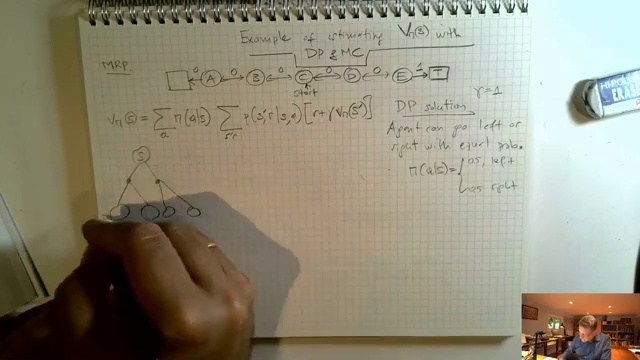 Example of estimating Vπ(s) with
DP & MC
MRP
0 A 0 B 0 C 0 D 0 E 1 T
start
Vπ(s) = Σ π(a|s) Σ p(s',r|s,a) [r+γVπ(s')]
a s',r
DP solution γ=1
Agent can go left or
right with equal prob.
π(a|s) = { 0.5, left
0.5 right
S
ERA